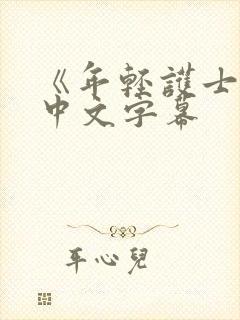 《年輕護士
中文字幕
平心兒